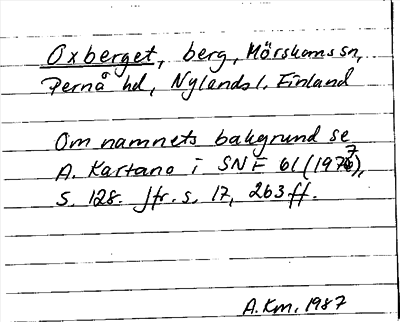 Oxberget, berg, Mörskoms sn,
Pernå hd, Nylands l. Finland
Om namnets bakgrund se
A. Kartano i SNF 61 (1977),
s. 128. Jfr. s. 17, 263 ff.
A.Km. 1987